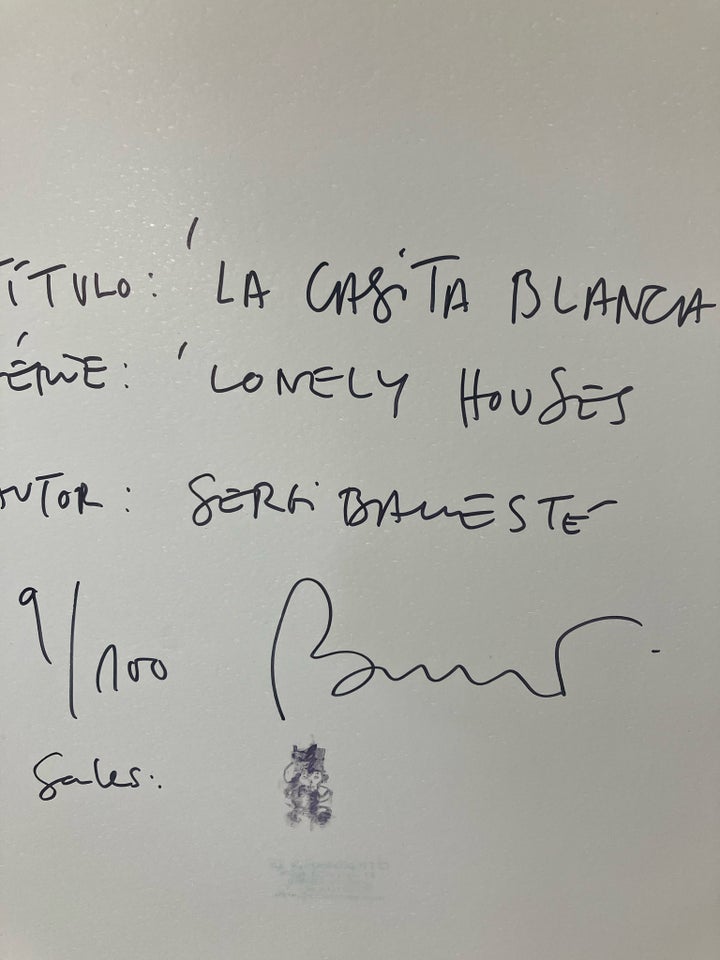 TÍTULO: 'LA CASITA BLANCA
ÉRIE: 'LONELY HOUSES
AUTOR: SERGI BALLESTÉ
9/100
Sales: